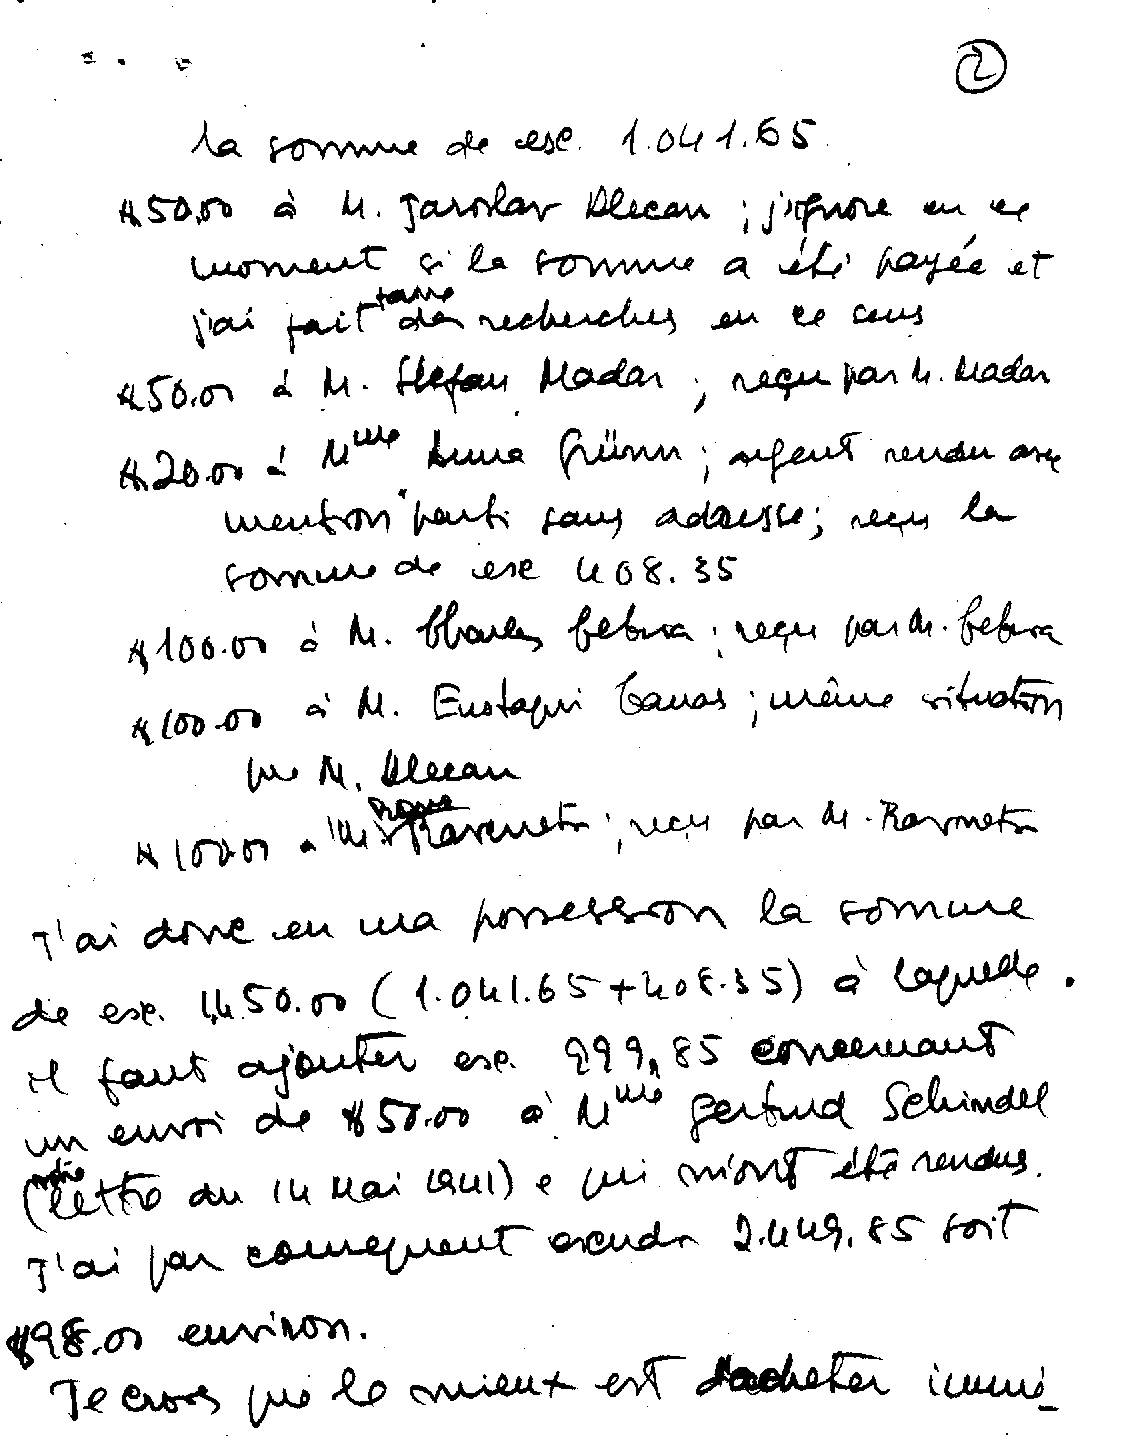 2
la somme de esc. 1.041.65
$50.00 à M. Jaroslav Alecan ; j'ignore en ce
moment si la somme a été payée et
j'ai fait faire des recherches en ce sens
$50.00 à M. Stefan Madar ; reçu par M. Madar
$20.00 à Mme Anna Grünn ; argent rendu avec
mention "parti sans adresse ; reçu la
somme de esc 408.35
$100.00 à M. Charles ; reçu par M.
$100.00 à M. Eustaqui Canas ; même situation
que M. Alecan
$100.00 a M. ; reçu par M.
J'ai donc en ma possession la somme
de esc. 1.450.00 (1.041.65 + 408.35) à laquelle
il faut ajouter esc. 999,85 concernant
un envoi de $50.00 à Mme Gertrud Schindel
(notre lettre du 14 Mai 1941) e qui m'ont été rendus.
J'ai par consequent escudos 2.449.85 soit
$98.00 environ.
Je crois que le mieux est d'acheter immé-